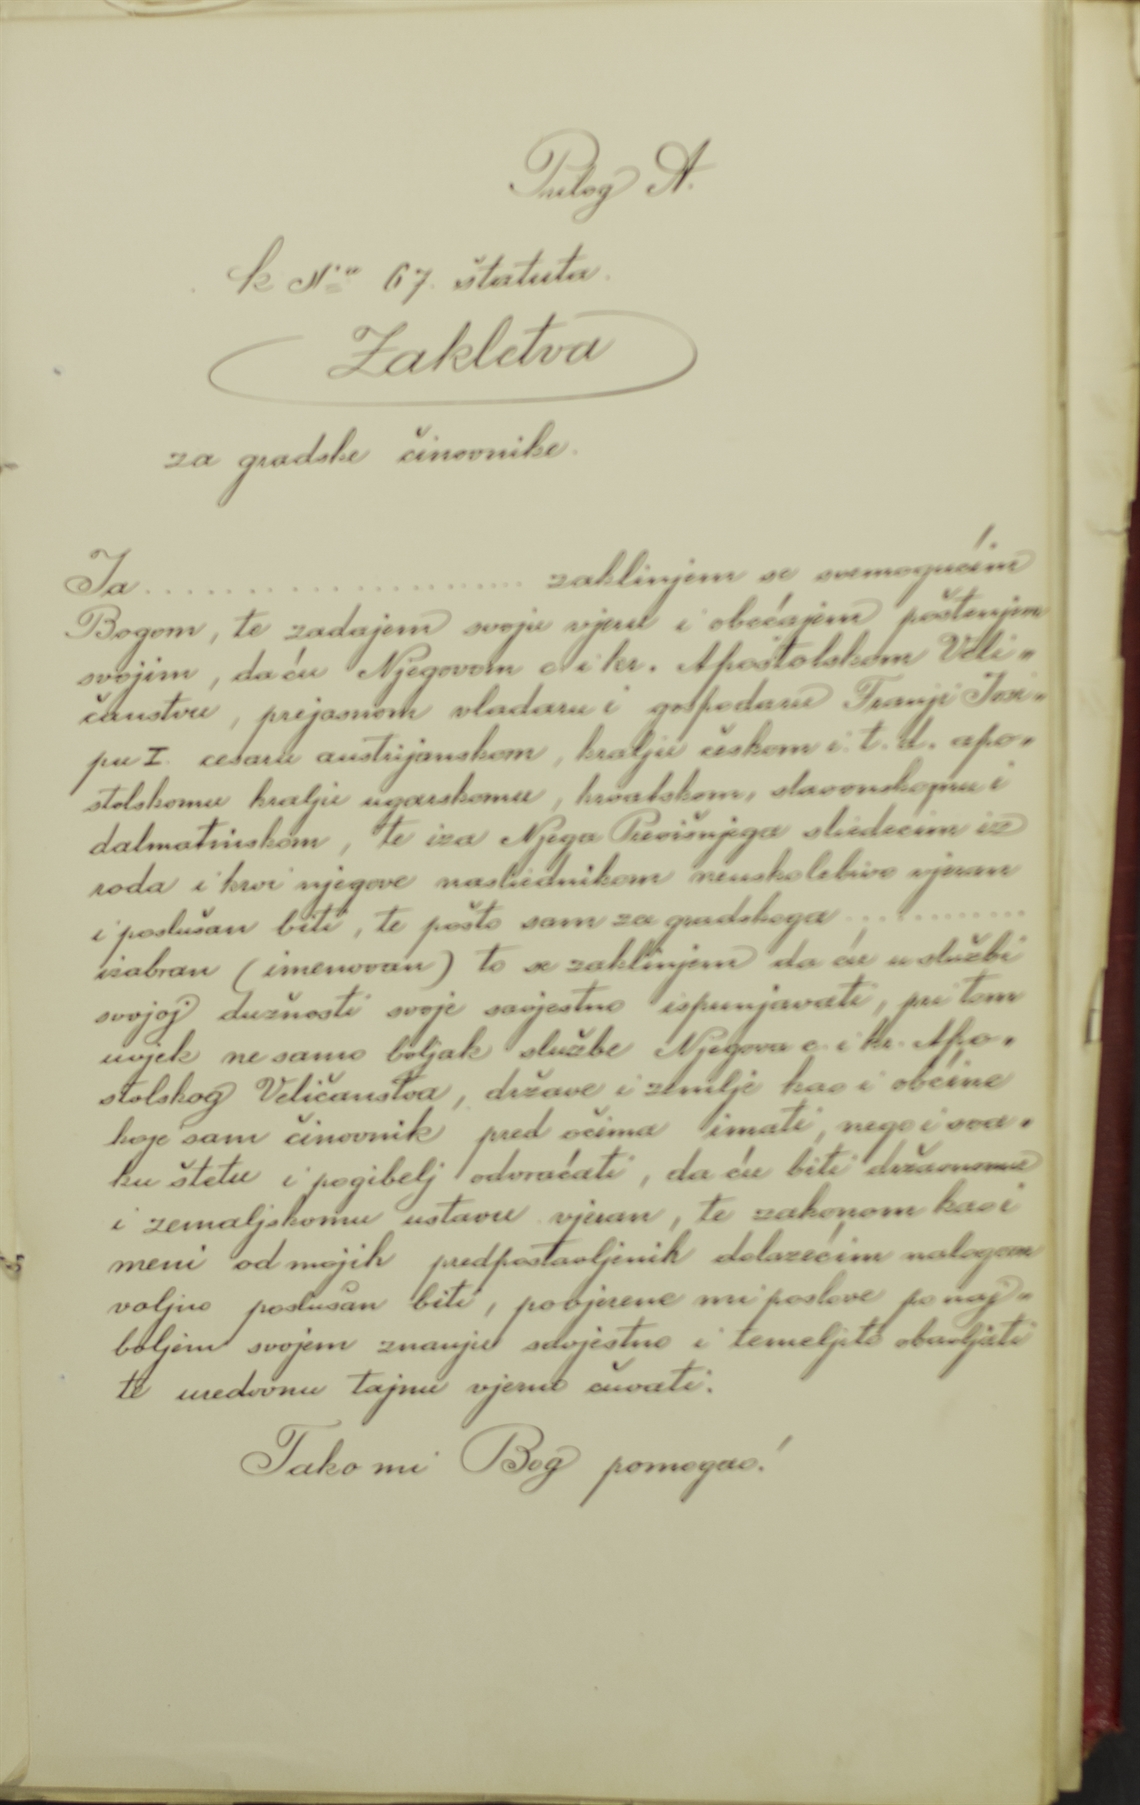 Prilog A.
k No 67. štatuta.
Zakletva
za gradske činovnike.
Ja ...................... zaklinjem se svemogućim
Bogom, te zadajem svoju vjeru i obećajem poštenjem
svojim, da ću Njegovom c. i kr. Apoštolskom Veli-
čanstvu, prejasnom vladaru i gospodaru Franji Josi-
pu I. cesaru austrijanskom, kralju českom i. t. d. apo-
stolskomu kralju ugarskomu, hrvatskom, slavonskomu i
dalmatinskom, te iza Njega Previšnjega sliedećim iz
roda i krvi njegove nasliednikom neuskolebivo vjeran
i poslušan biti, te pošto sam za gradskoga ............
izabran (imenovan) to se zaklinjem da ću u službi
svojoj dužnosti svoje savjestno ispunjavati, pri tom
uvjek ne samo boljak službe Njegova c. i kr. Apo-
stolskog Veličanstva, države i zemlje kao i obćine
koje sam činovnik pred očima imati, nego i sva-
ku štetu i pogibelj odvraćati, da ću biti državnomu
i zemaljskomu ustavu vjeran, te zakonom kao i
meni od mojih predpostavljenih dolazećim nalogom
voljno poslušan biti, povjerene mi poslove po naj-
boljem svojem znanju savjestno i temeljito obavljati
te uredovnu tajnu vjerno čuvati.
Tako mi Bog pomogao!